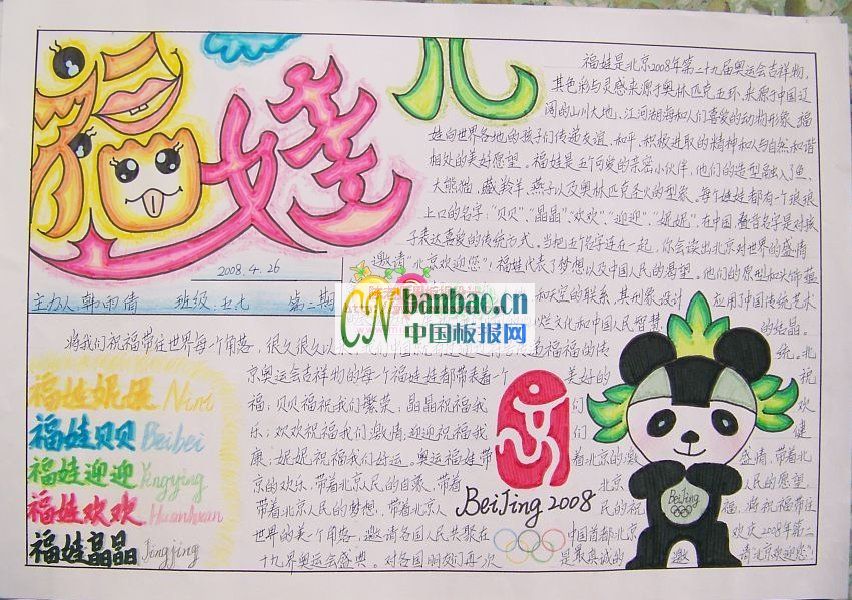 福娃儿
福娃是北京2008年第二十九届奥运会吉祥物,
其色彩与灵感来源于奥林匹克五环、来源于中国辽
阔的山川大地、江河湖海和人们喜爱的动物形象。福
娃向世界各地的孩子们传递友谊、和平、积极进取的精神和人与自然和谐
相处的美好愿望。福娃是五个可爱的亲密小伙伴,他们的造型融入了鱼、
大熊猫、藏羚羊、燕子以及奥林匹克圣火的型象。每个娃娃都有一个琅琅
上口的名字:"贝贝"、"晶晶"、"欢欢"、"迎迎"、"妮妮",在中国,叠音名字是对孩
子表达喜爱的传统方式。当把五个名字连在一起,你会读出北京对世界的盛情
邀请"北京欢迎您"!福娃代表了梦想以及中国人民的渴望。他们的原型和头饰蕴
和天空的联系,其形象设计 应用了中国传统艺术
烂文化和中国人民智慧 的结晶。
2008.4.26
主办人:韩雨倩 班级:五、七 第二期
CN banbao.cn
中国板报网
将我们祝福带往世界每个角落,很久很久以 福的传 统。北
京奥运会吉祥物的每个福娃娃都带来着一个 美好的 祝
福:贝贝福祝我们繁荣;晶晶祝福我 们 欢
乐;欢欢祝福我们激情;迎迎祝福我 们 健
康;妮妮祝福我们好运。奥运福娃带 着北京的激 盛情,带着北
京的欢乐、带着北京人民的自豪、带着 北京人 民的愿望
带着北京人民的梦想、带着北京人 民的祝 福,将祝福带往
世界的美个角落,邀请各国人民共聚在 中国首都北京 欢庆2008年第二
十九界奥运会盛典。对各国朋友们再次 是最真诚的 邀 请"北京欢迎您"!
福娃妮妮 Nini
福娃贝贝 Beibei
福娃迎迎 Yingying
福娃欢欢 Huanhuan
福娃晶晶 Jingjing
BeiJing 2008
BeiJing